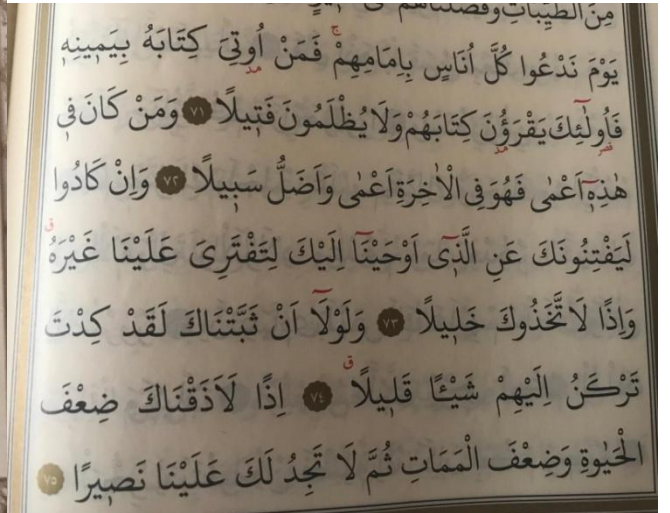 مِنَ الطَّيِّبَاتِ وَفَضَّلْنَاهُمْ
يَوْمَ نَدْعُوا كُلَّ اُنَاسٍ بِاِمَامِهِمْ ۚ فَمَنْ اُو۫تِيَ كِتَابَهُ بِيَمٖينِهٖ
فَاُو۬لٰٓئِكَ يَقْرَؤُ۫نَ كِتَابَهُمْ وَلَا يُظْلَمُونَ فَتٖيلًا ﴿٧١﴾ وَمَنْ كَانَ فٖي
هٰذِهٖٓ اَعْمٰى فَهُوَ فِي الْاٰخِرَةِ اَعْمٰى وَاَضَلُّ سَبٖيلًا ﴿٧٢﴾ وَاِنْ كَادُوا
لَيَفْتِنُونَكَ عَنِ الَّذٖٓي اَوْحَيْنَٓا اِلَيْكَ لِتَفْتَرِيَ عَلَيْنَا غَيْرَهُ
وَاِذًا لَاتَّخَذُوكَ خَلٖيلًا ﴿٧٣﴾ وَلَوْلَٓا اَنْ ثَبَّتْنَاكَ لَقَدْ كِدْتَ
تَرْكَنُ اِلَيْهِمْ شَيْـًٔا قَلٖيلًا ﴿٧٤﴾ اِذًا لَاَذَقْنَاكَ ضِعْفَ
الْحَيٰوةِ وَضِعْفَ الْمَمَاتِ ثُمَّ لَا تَجِدُ لَكَ عَلَيْنَا نَصٖيرًا ﴿٧٥﴾